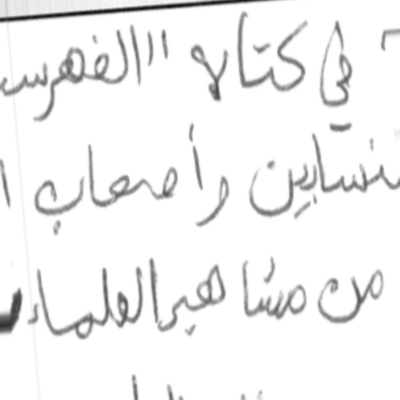 في كتابه "الفهرس
نسابين وأصحاب ا
من مشاهير العلماء